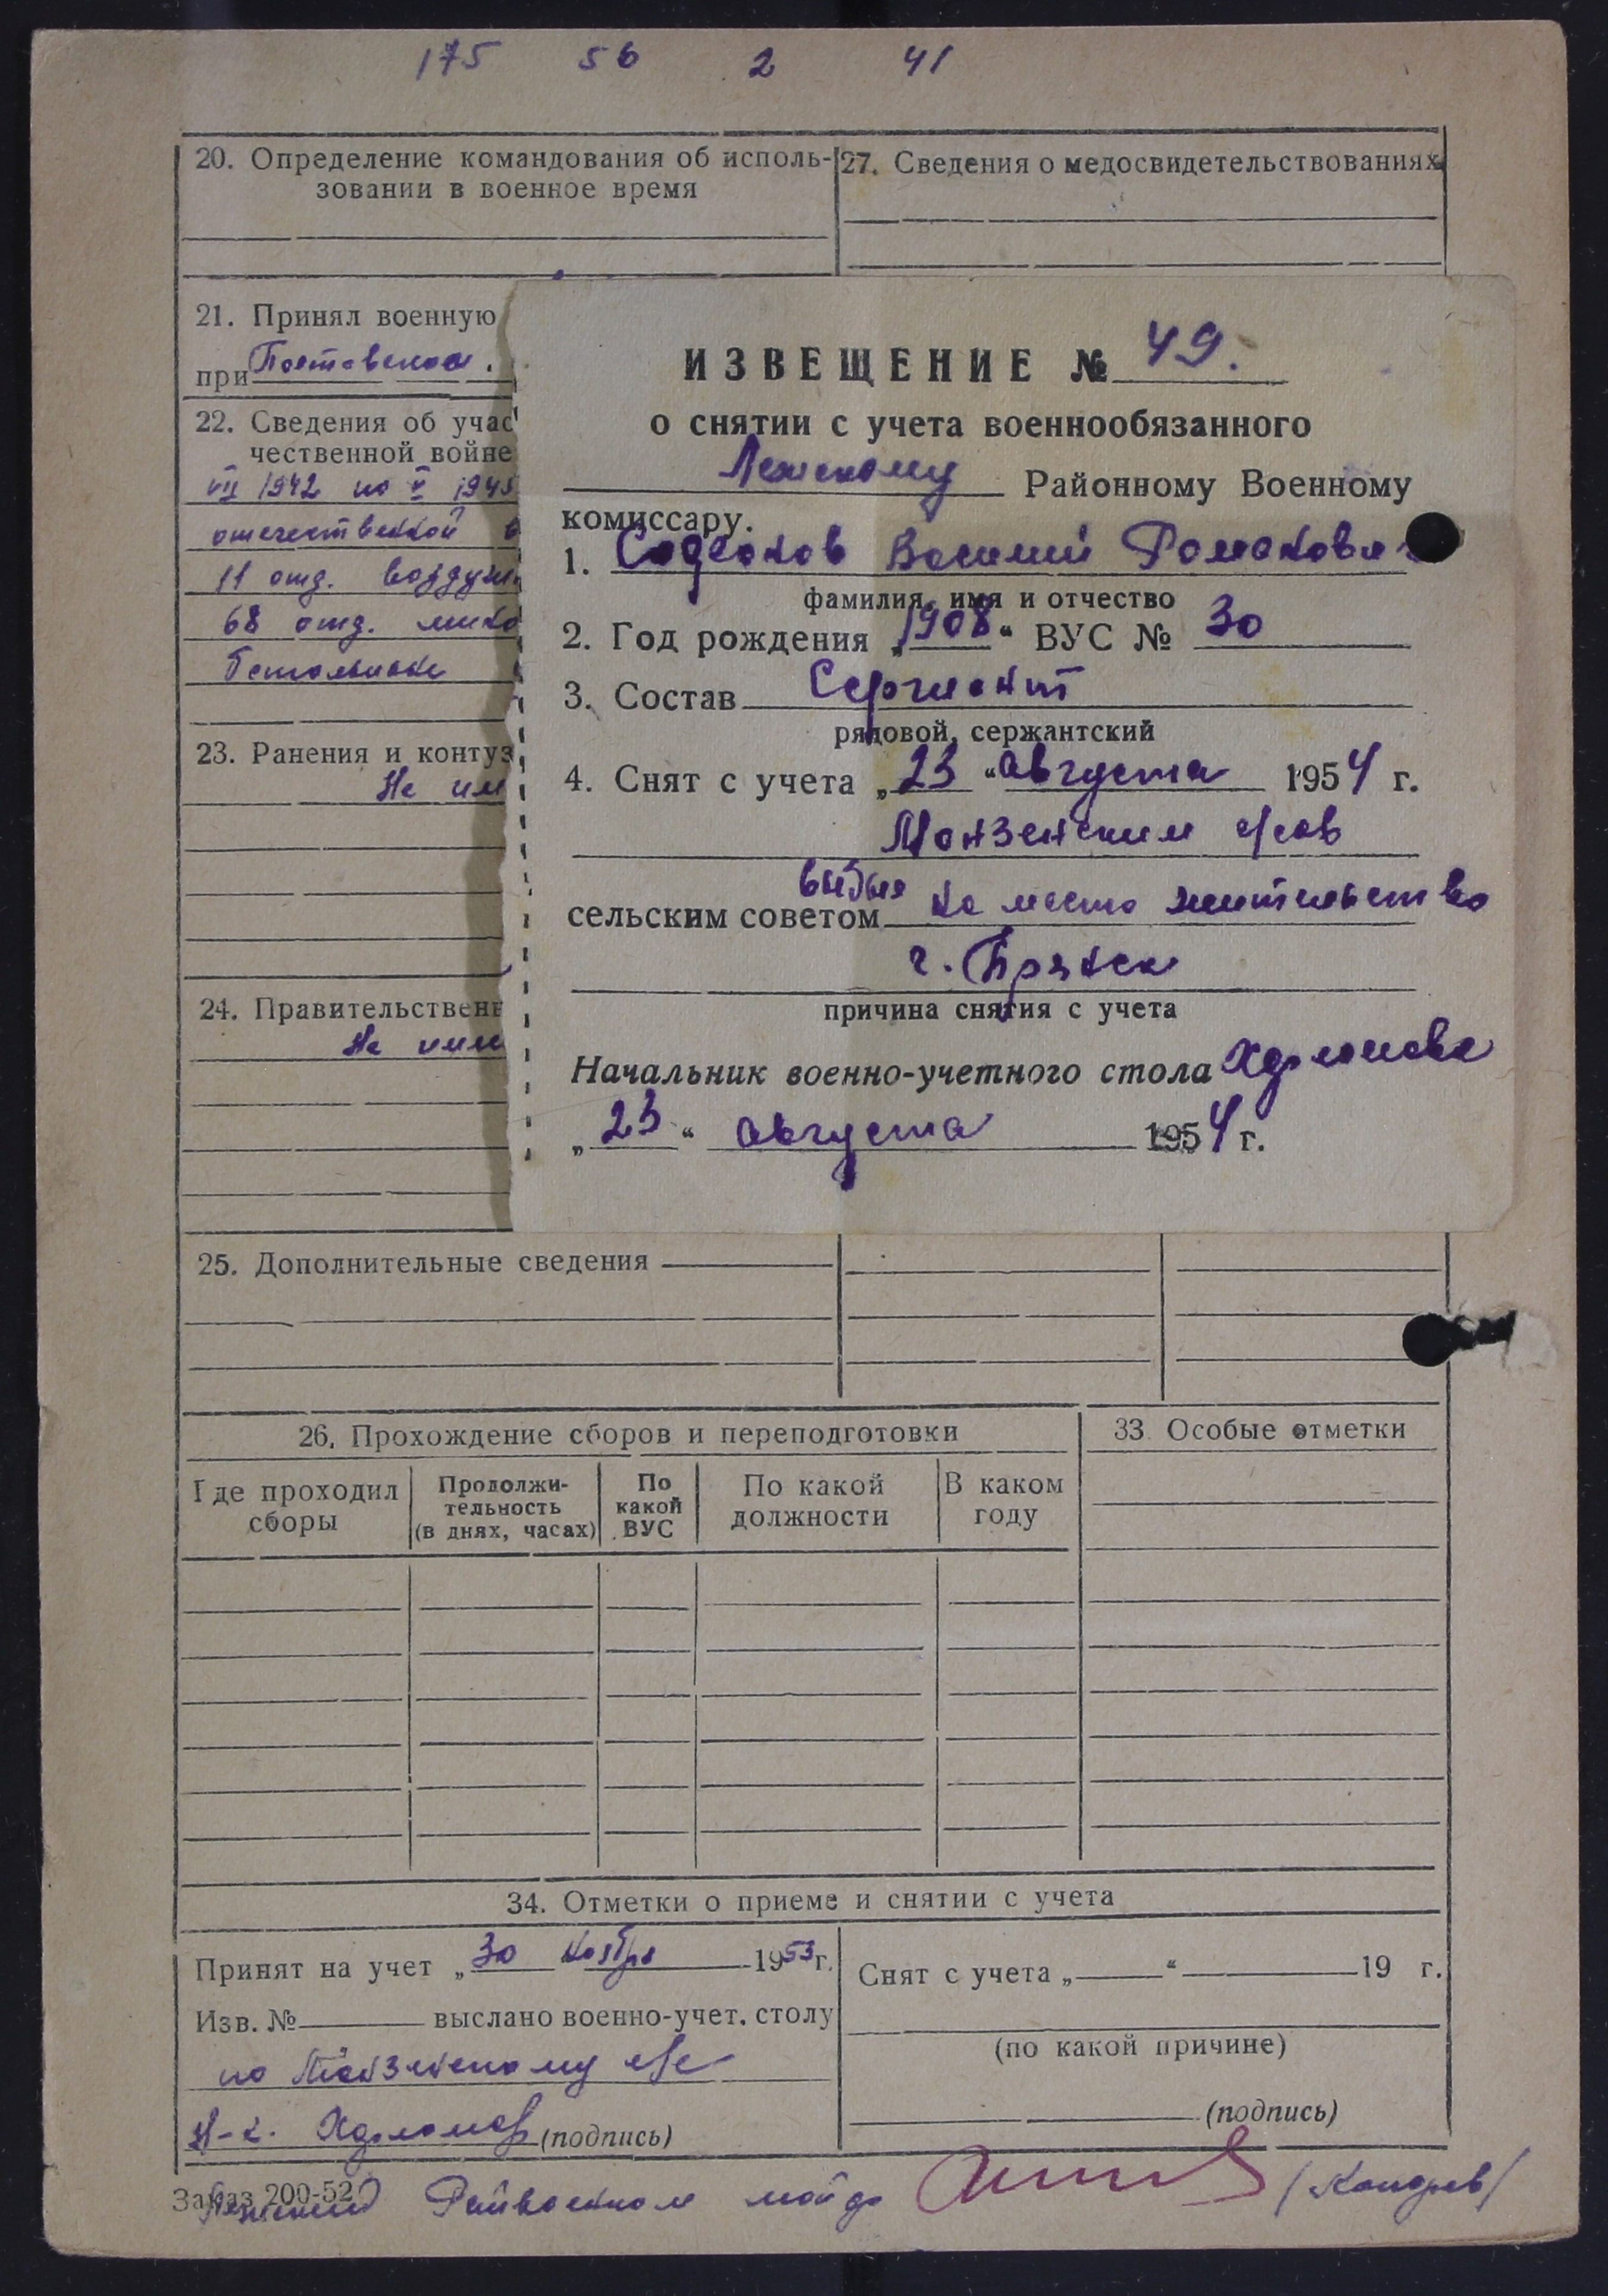 175 56 2 41
20. Определение командования об исполь-
зовании в военное время
27. Сведения о медосвидетельствованиях
21. Принял военную
при
22. Сведения об учас
чественной войне
VII 1942 по V 1945
отечественной в
11 отд. воздушн
68 отд.
23. Ранения и контуз
Не им
24. Правительственн
Не име
ИЗВЕЩЕНИЕ № 49.
о снятии с учета военнообязанного
Лежскому Районному Военному
комиссару.
1. Василий Романович
фамилия, имя и отчество
2. Год рождения „1908“ ВУС № 30
3. Состав Сержант
рядовой, сержантский
4. Снят с учета „23“ августа 1954 г.
Монзенским с/сов
выбыл
сельским советом на место жительство
г. Брянск
причина снятия с учета
Начальник военно-учетного стола
„23“ августа 1954 г.
25. Дополнительные сведения
26. Прохождение сборов и переподготовки
33 Особые отметки
Где проходил
сборы
Продолжи-
тельность
(в днях, часах)
По
какой
ВУС
По какой
должности
В каком
году
34. Отметки о приеме и снятии с учета
Принят на учет „30 ноября 1953 г.
Изв. № выслано военно-учет. столу
по Монзенскому с/с
Н-к. (подпись)
Снят с учета „ “ 19 г.
(по какой причине)
(подпись)
Заказ 200-52
Лежский Райвоенком майор